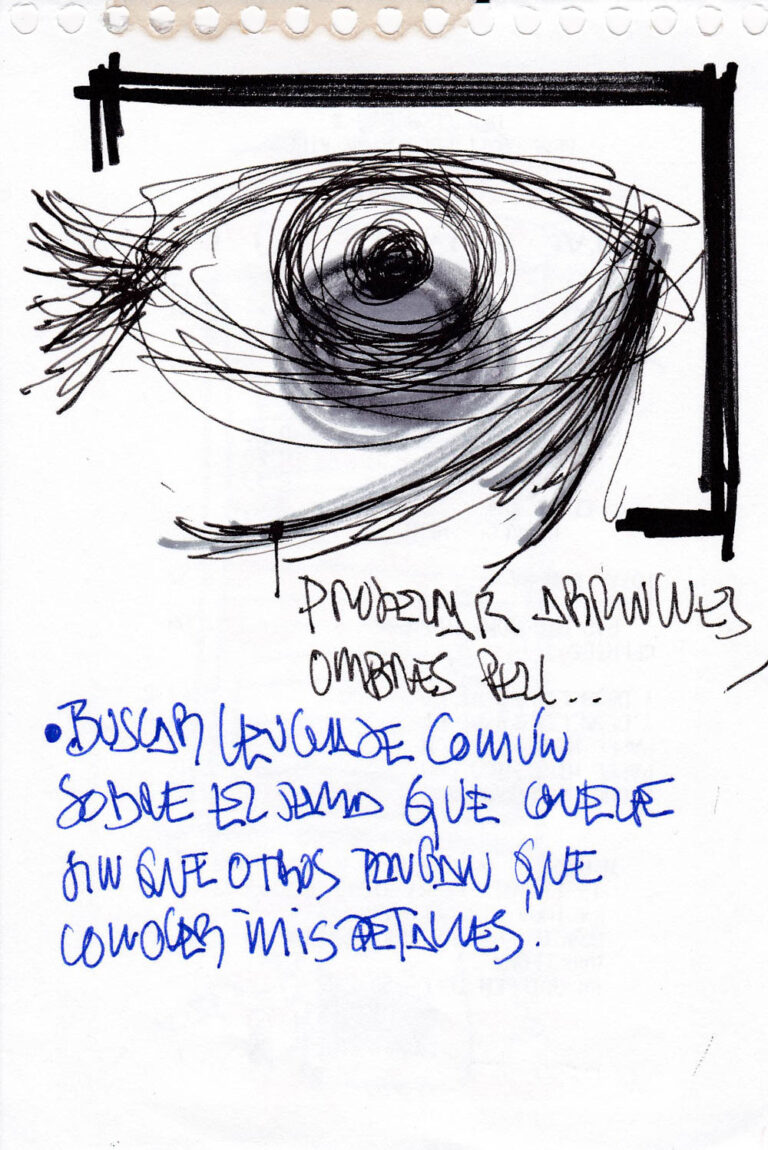 PROYECTAR ARRUGUES
OMBRES PELL...
• BUSCAR LENGUAJE COMÚN
SOBRE EL TEMA QUE CONECTE
SIN QUE OTROS TENGAN QUE
CONOCER "MIS DETALLES".